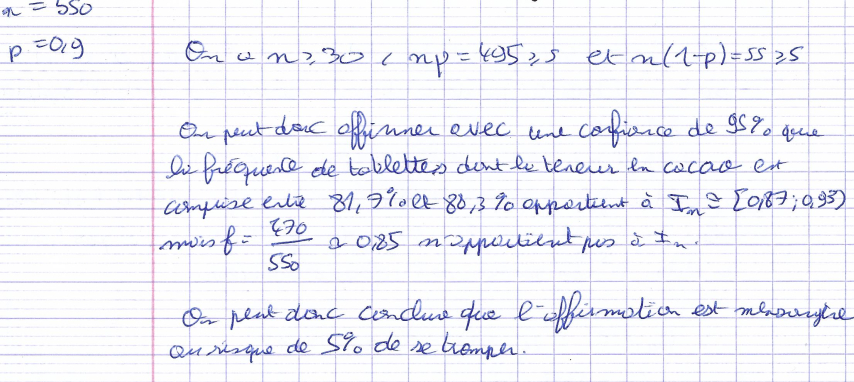 n = 550
p = 0,9
On a n ≥ 30, np = 495 ≥ 5 et n(1-p) = 55 ≥ 5
On peut donc affirmer avec une confiance de 95% que
la fréquence de tablettes dont la teneur en cacao est
comprise entre 81,7% et 88,3% appartient à In ≅ [0,87 ; 0,93)
mais f = 470/550 ≃ 0,85 n'appartient pas à In.
On peut donc conclure que l'affirmation est mensongère
au risque de 5% de se tromper.